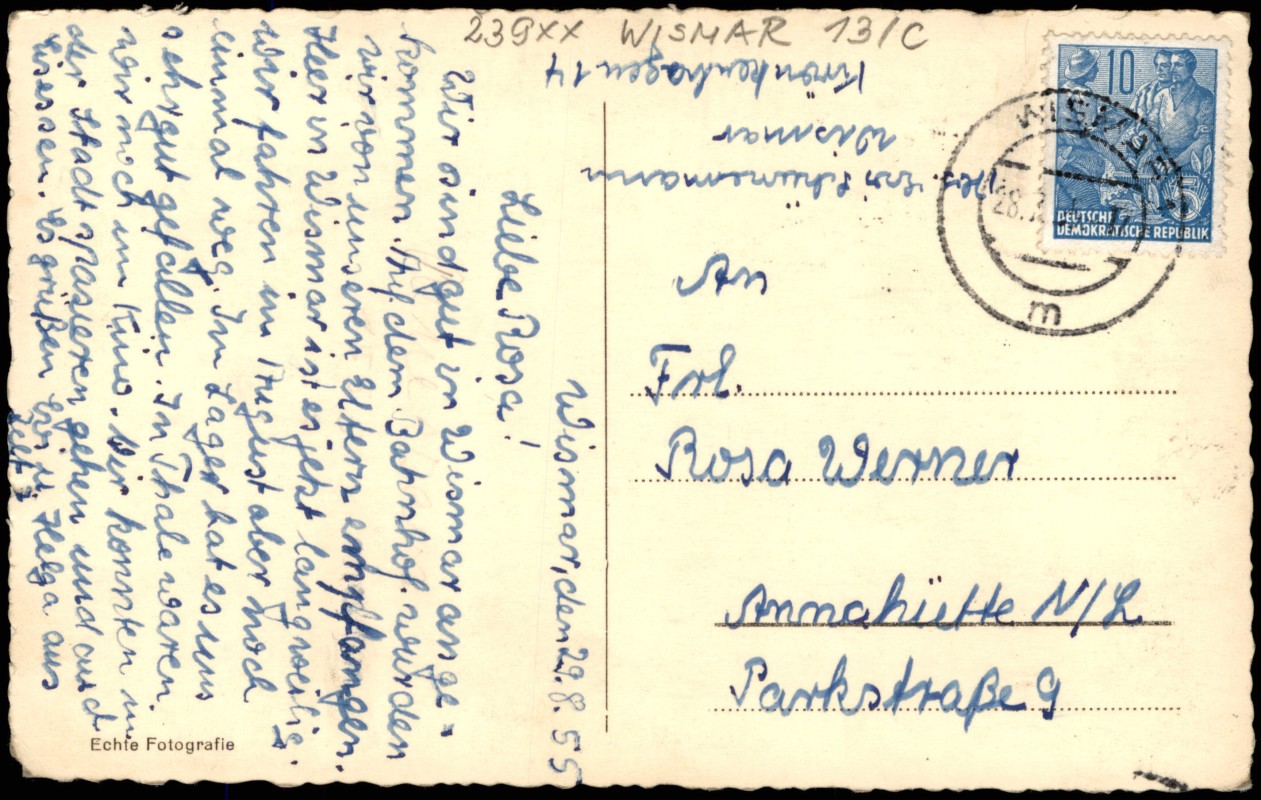 239xx WISMAR 13/C
Wismar, den 29.8.55
Liebe Rosa!
Wir sind gut in Wismar ange=
kommen. Auf dem Bahnhof wurden
wir von unseren Eltern empfangen.
Hier in Wismar ist es jetzt langweilig.
Wir fahren im August aber noch
einmal weg. Im Lager hat es uns
sehr gut gefallen. In Thale waren
wir noch im Kino. Wir konnten in
der Stadt spazieren gehen und auch
Eis essen. Es grüßen Helga aus
Zelt 3
Echte Fotografie
Schünemann
Wismar
Krönkenhagen 14
10
DEUTSCHE
DEMOKRATISCHE REPUBLIK
WISMAR
m
An
Frl.
Rosa Werner
Annahütte N/L
Parkstraße 9